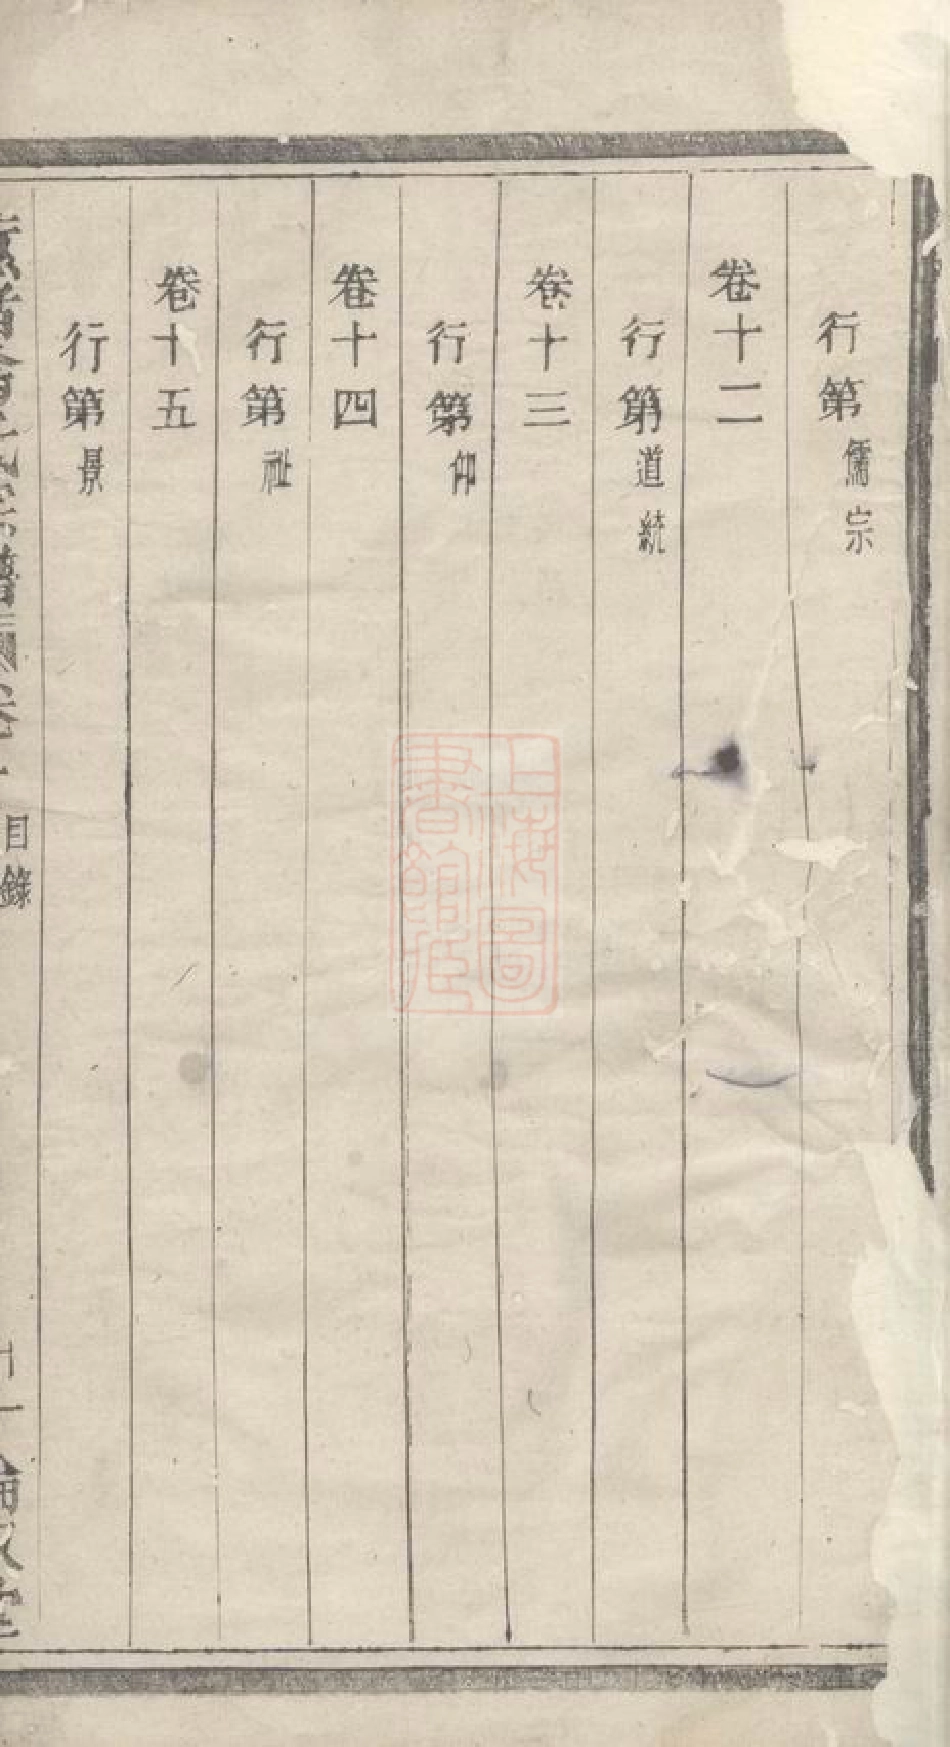 行第儒宗
卷十二
行第道統
卷十三
行第仰
卷十四
行第祉
卷十五
行第景
宗譜
目錄
上海圖
書館藏